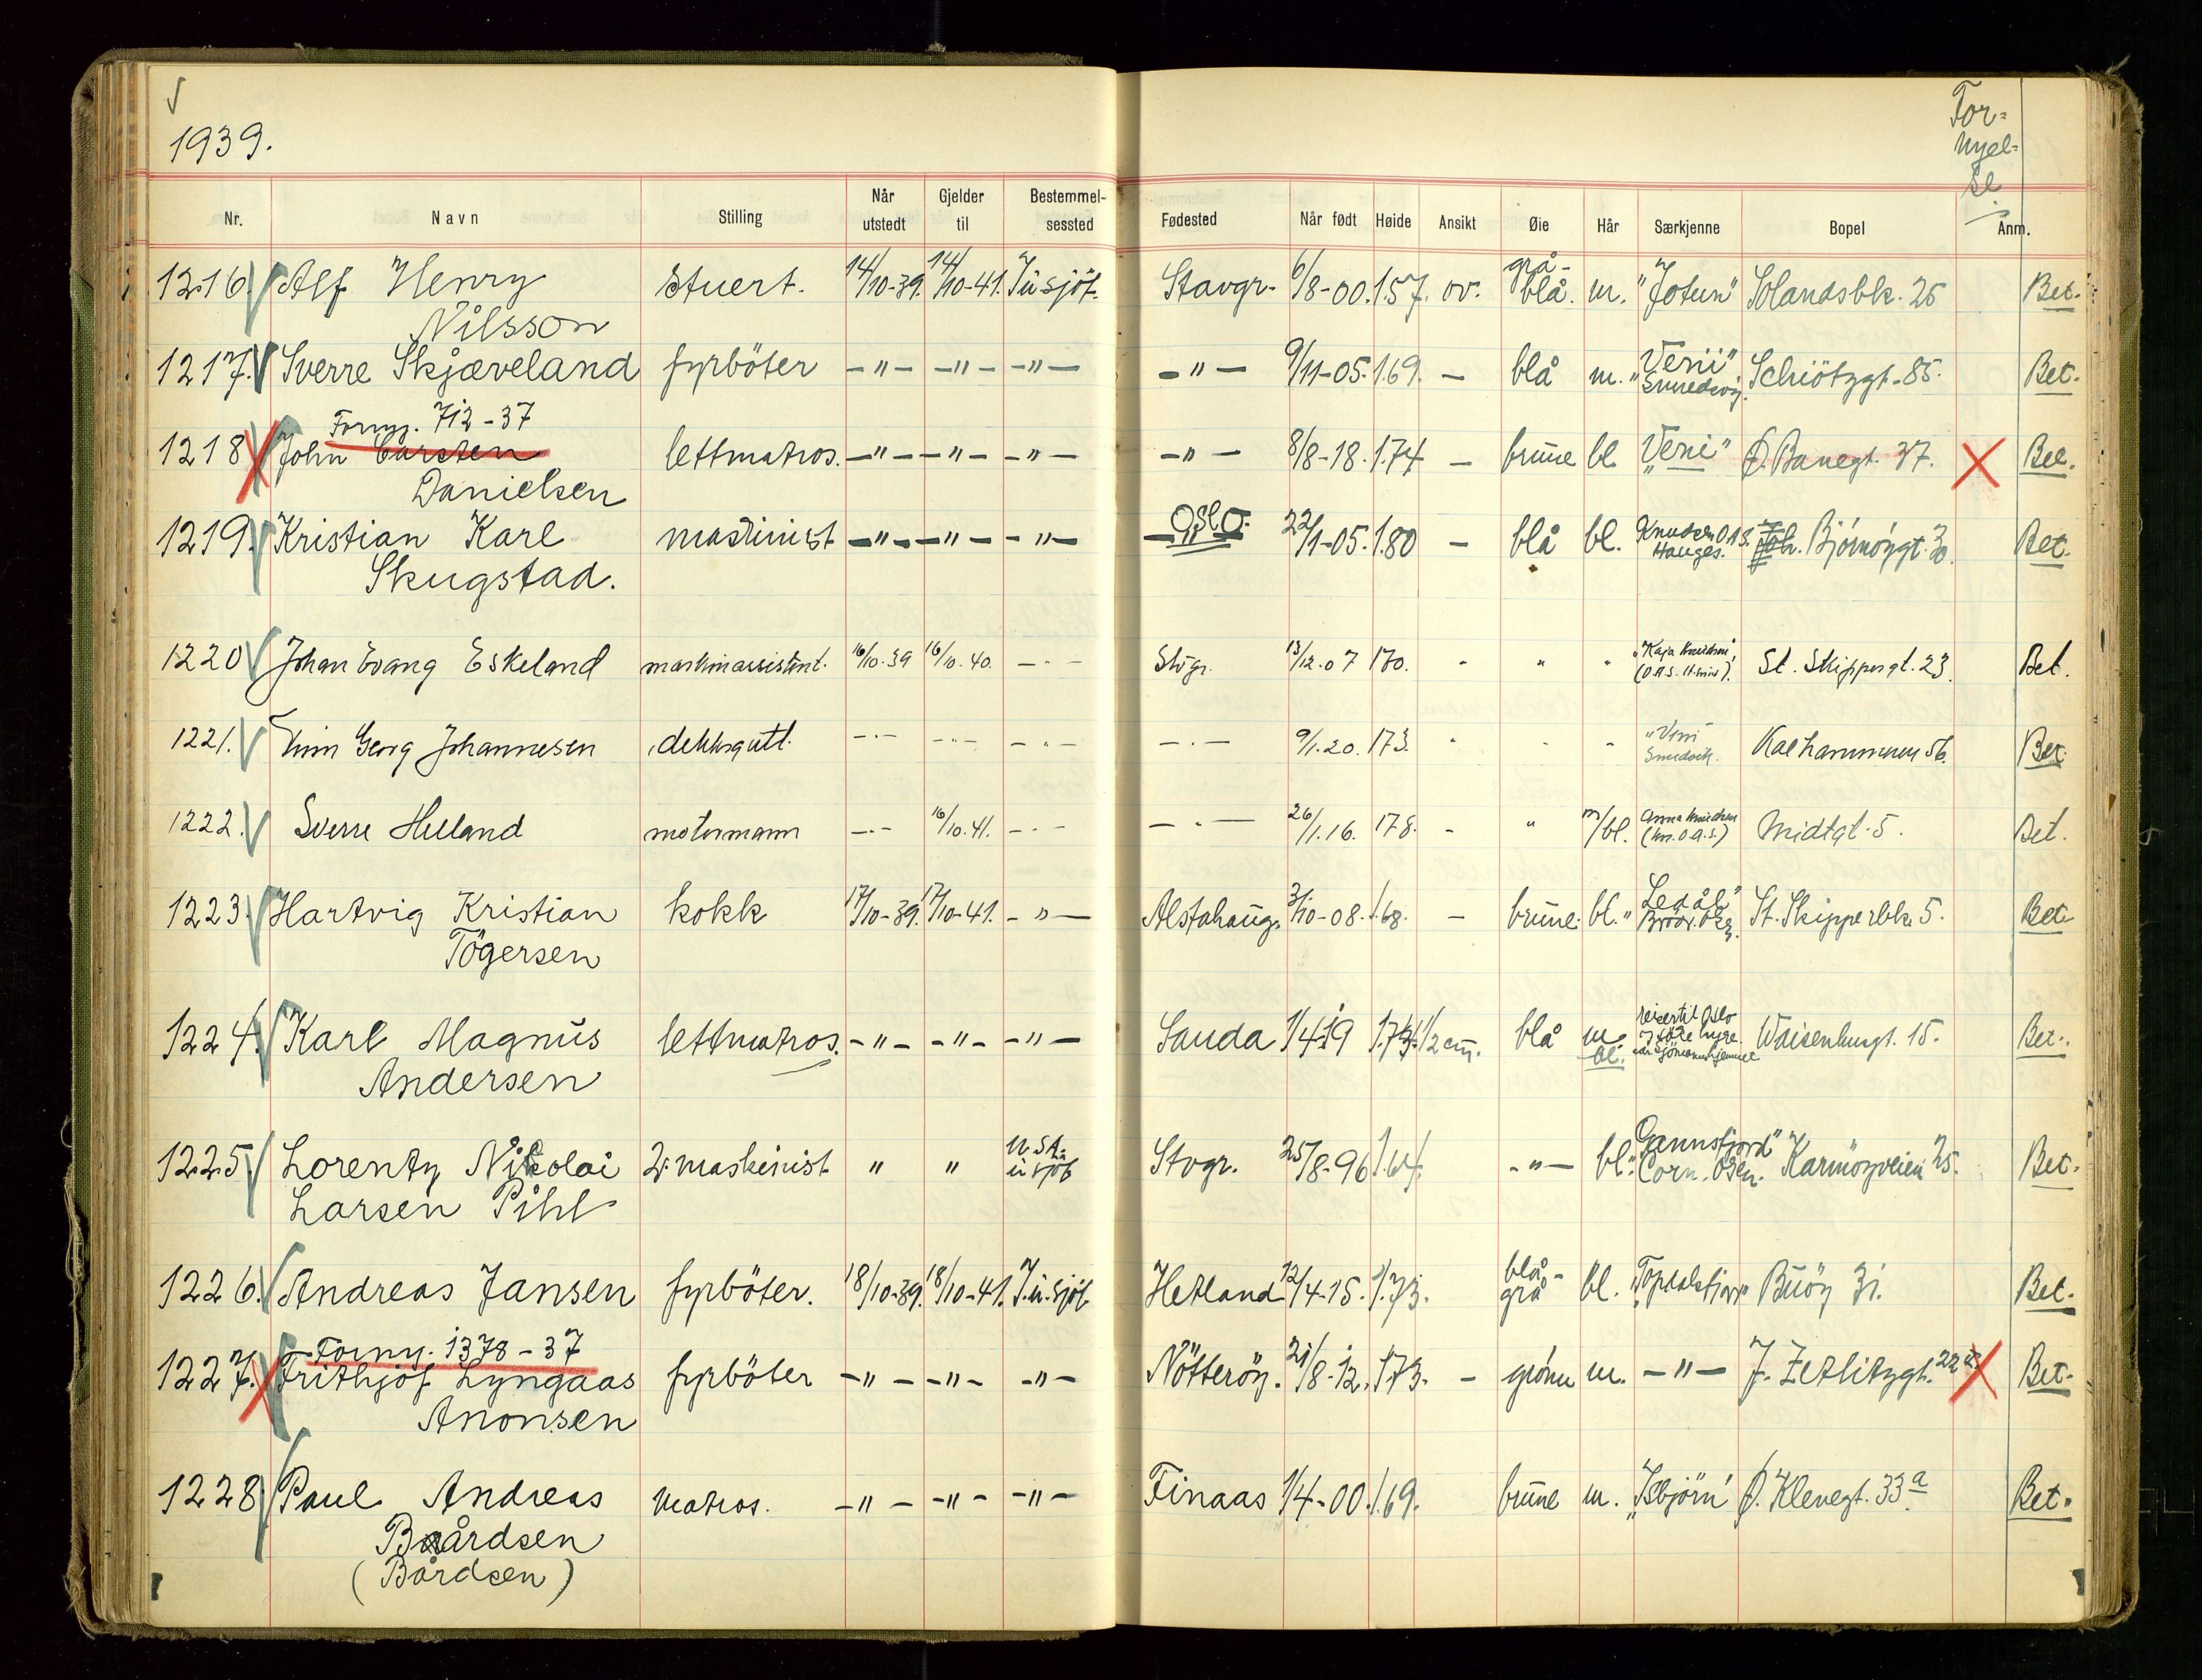 1939.
For-
nyel-
se
Nr. Navn Stilling Når utstedt Gjelder til Bestemmel-sessted Fødested Når født Høide Ansikt Øie Hår Særkjenne Bopel Anm.
1216 Alf Henry Stuert. 14/10-39. 14/10-41. I u sjöf. Stavgr. 6/8-00. 1.57. ov. grå-blå. m. "Jotun" Solandsbk. 26 Bet.
Nilsson
1217. Sverre Skjæveland fyrböter -"- -"- -"- -"- 9/11-05. 1.69. - blå m. "Veni" Smedvig. Schiötzgt. 85. Bet.
Forny. 712-37
1218 John Carsten lettmatros. -"- -"- -"- -"- 8/8-18. 1.74 - brune bl. "Veni" Ø. Banegt. 37. Bet.
Danielsen
1219. Kristian Karl maskinist -"- -"- -"- Oslo. 22/1-05. 1.80 - blå bl. Knudsen O.A.S. Hauges. Bjørnøygt. 30. Bet.
Skugstad.
1220 Johan Evang Eskeland maskinassistent. 16/10.39 16/10.40. -"- Stvgr. 13/12.07 170. " " " "Kaja Knudsen" (O.A.S. H.sund). St. Skippergt. 23. Bet.
1221. Finn Georg Johannesen dekksgutt. -"- -"- -"- -"- 9/1.20. 173. " " " "Veni" Smedvik. Kalhammeren 56. Bet.
1222. Sverre Helland motormann -"- 16/10.41. -"- -"- 26/1.16. 178. - " m/bl. Anna Knudsen (Kn. O.A.S.) Midtgt. 5. Bet.
1223 Hartvig Kristian kokk 17/10-39. 17/10-41. -"- Alstahaug. 3/10-08. 1.68. - brune. bl. "Ledål" Brödr. Olsen. St. Skipperbk. 5. Bet.
Tögersen
1224. Karl Magnus lettmatros. -"- -"- -"- Sauda 1/4 19 1.74 1/2 cm. blå m. bl. reiser til Oslo og søke hyre. Waisenhusgt. 15. Bet.
Andersen
1225 Lorentz Nikolai 2. maskinist " " u sjöf Stvgr. 25/8-96 1.64. -"- bl. "Gannsfjord" Corn. Olsen. Karmöyveien 25. Bet.
Larsen Pihl
1226. Andreas Jansen fyrböter. 18/10-39. 18/10-41. I. u. sjöf Hetland 12/4-15. 1.73. blå-grå bl. "Topdalsfjord" Buöy 31. Bet.
Forny. 1378-37
1227. Frithjof Lyngaas fyrböter -"- -"- -"- Nötteröy. 21/8-12. 1.73. - grønn m. -"- J. Zetlitzgt. 22 Bet.
Anonsen
1228 Paul Andreas matros. -"- -"- -"- Finaas 1/4-00. 1.69. brune m. "Isbjørn" Ø. Klevegt. 33a Bet.
Baårdsen
(Bårdsen)